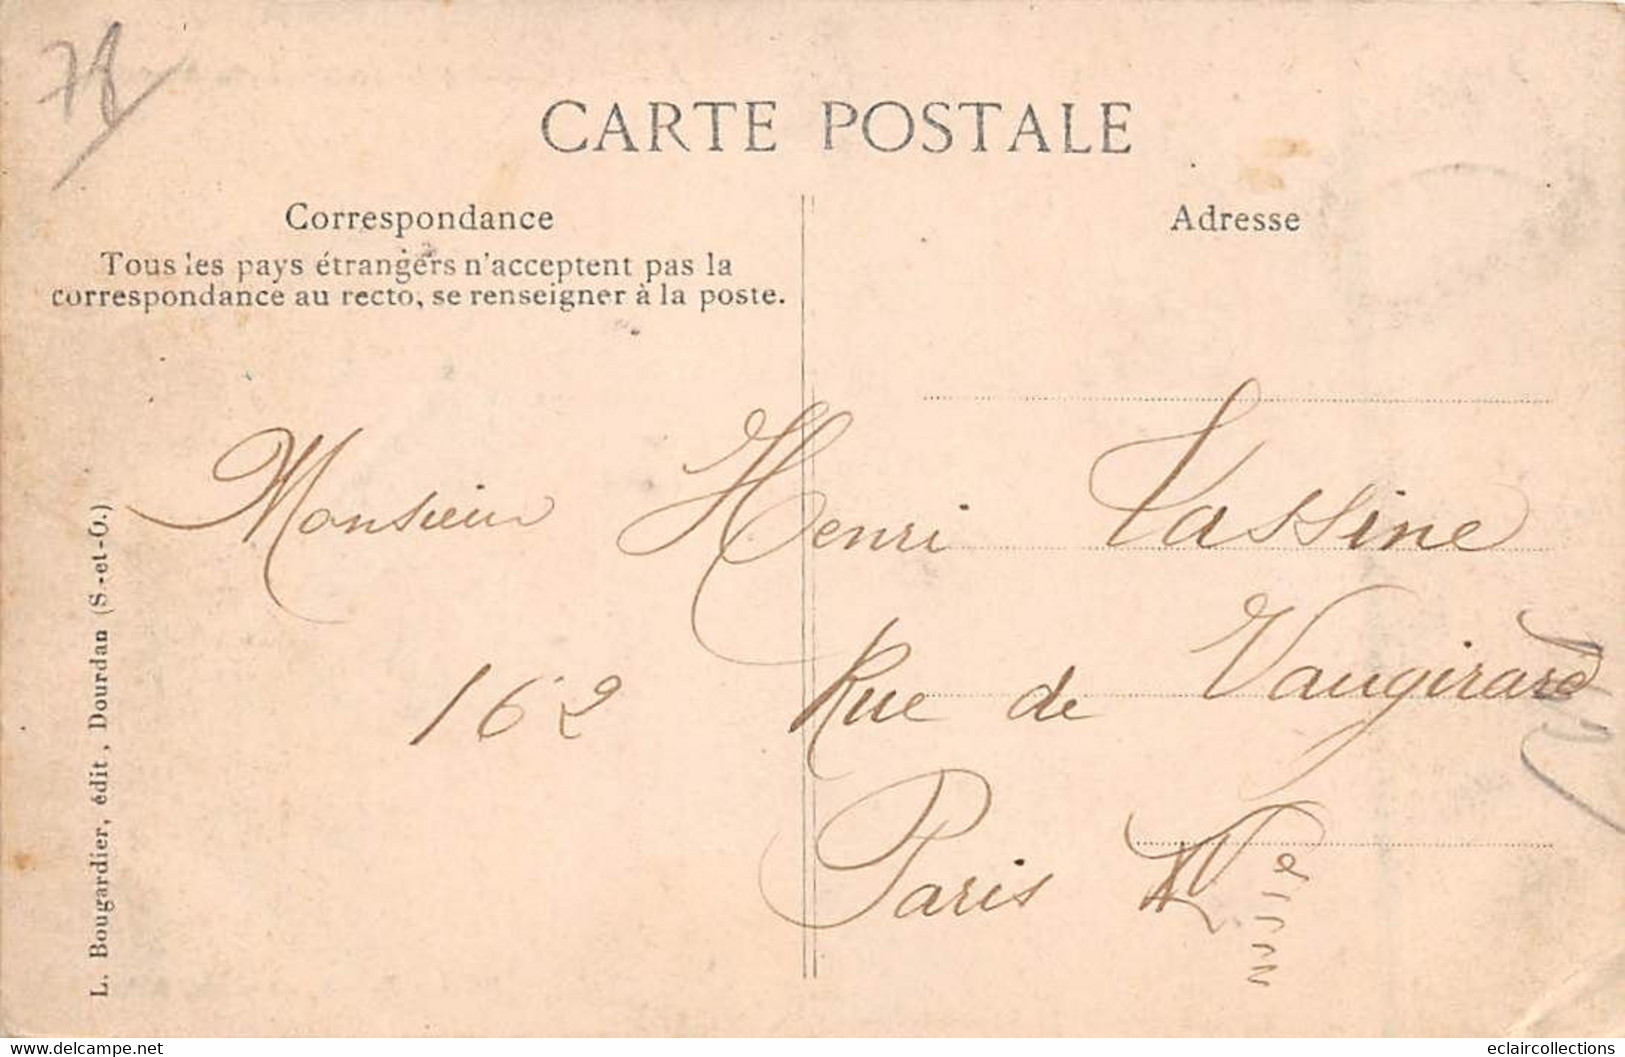 78
CARTE POSTALE
Correspondance
Tous les pays étrangers n'acceptent pas la
correspondance au recto, se renseigner à la poste.
Adresse
Monsieur Henri Vassine
162 Rue de Vaugirard
Paris
L. Bougardier, édit, Dourdan (S.-et-O.)
delcampe.net
eclaircollections